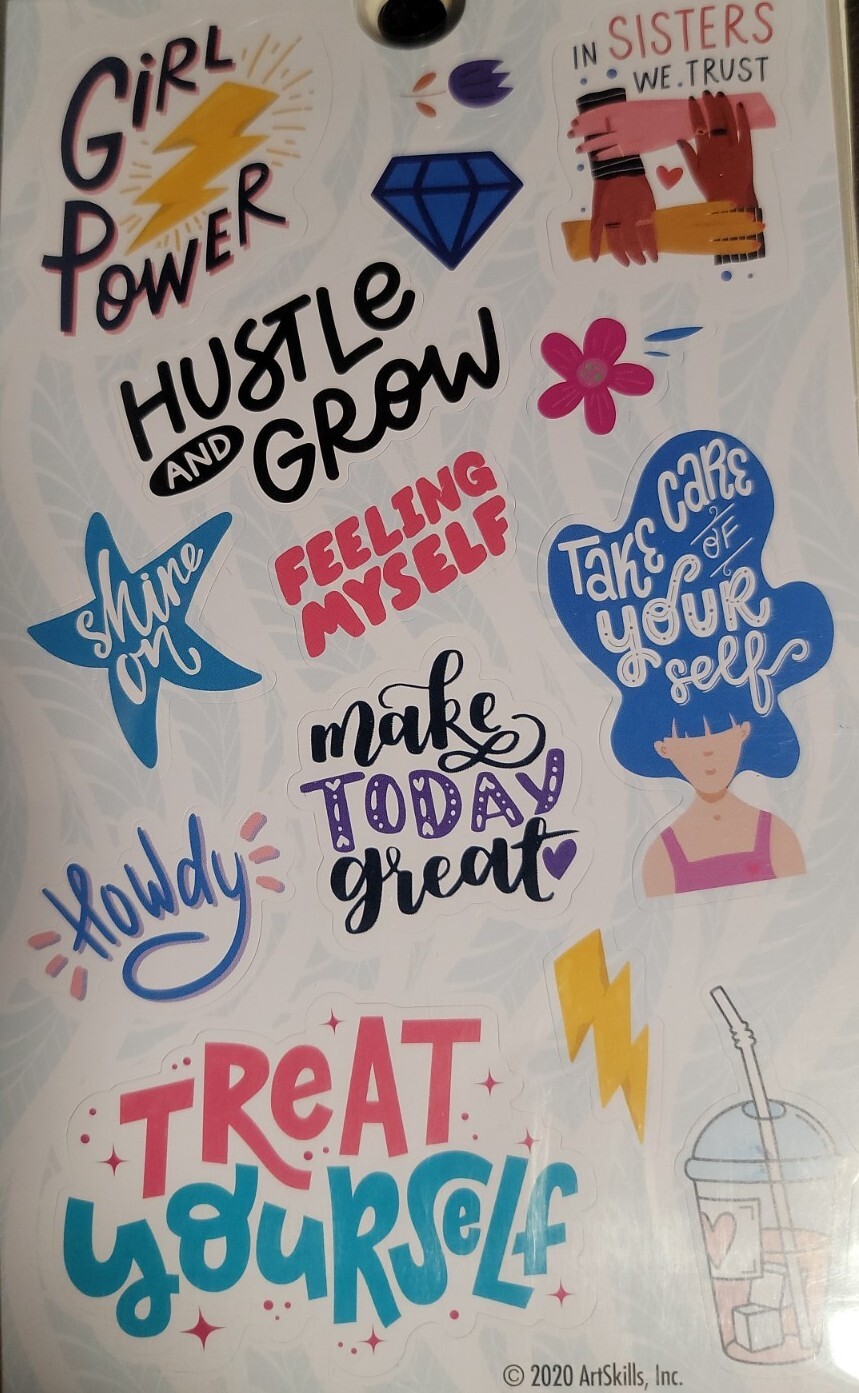 GiRL
POWER
IN SISTERS
WE TRUST
HUSTLe
AND GROW
FEELING
MYSELF
TAKE CARE
OF
YOUR
self
shine
on
make
TODAY
great
Howdy
TReAT
youRSeLf
© 2020 ArtSkills, Inc.